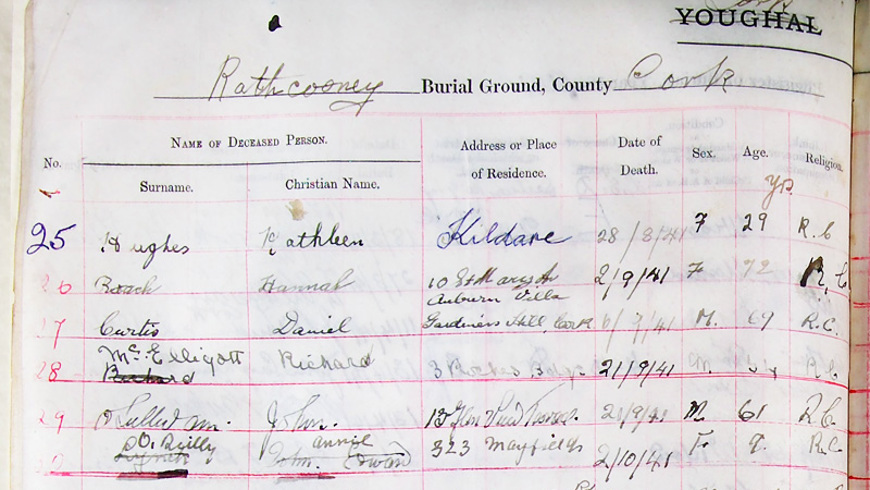 Cork
YOUGHAL
Rathcooney Burial Ground, County Cork
No. NAME OF DECEASED PERSON. Address or Place of Residence. Date of Death. Sex. Age. Religion.
Surname. Christian Name.
yrs
25 Hughes Kathleen Kildare 28/8/41 F 29 R.C
26 Roach Hannah 10 St Mary's 2/9/41 F. 72 R.C.
Auburn Villa
27 Curtis Daniel Gardiners Hill, Cork 6/9/41 M. 69 R.C.
28 McElligott Richard 3 21/9/41 M. R.C.
Richard
29 O'Sullivan John. 13 Glen View Terrace 21/9/41 M. 61 R.C.
O'Reilly annie 323 Mayfield 2/10/41 F. 9. R.C.
John.